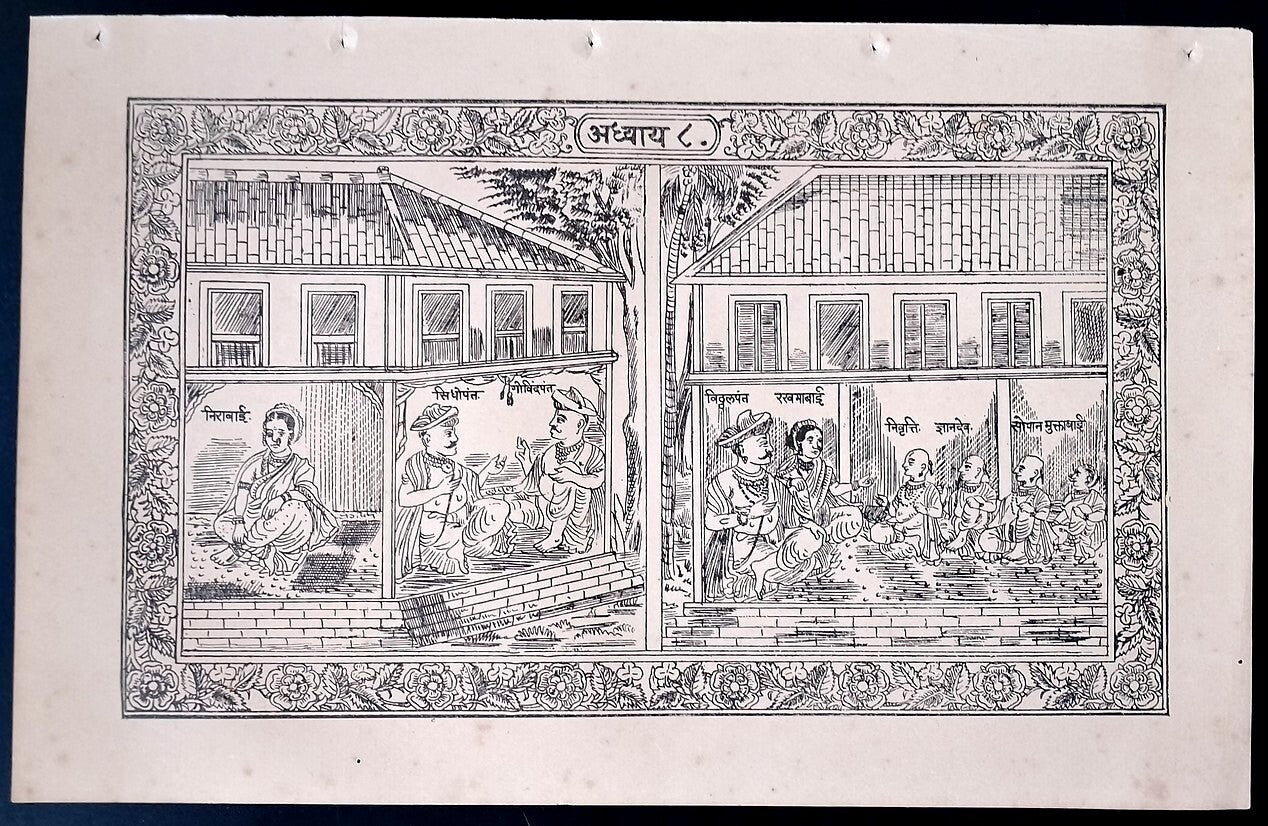 अध्याय ८.
निराबाई
सिधोपंत
गोविंदपंत
विठ्ठलपंत
रखमाबाई
निवृत्ति
ज्ञानदेव
सोपान
मुक्ताबाई